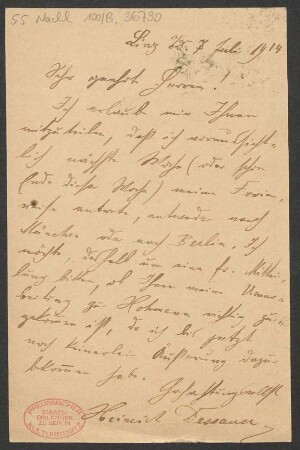 55 Nachl 100/B, 36790
Linz, 7 Juli 1914
Sehr geehrte Herren!
Ich erlaube mir Ihnen
mitzuteilen, daß ich voraussicht-
lich nächste Woche (oder schon
Ende diese Woche) meine Ferien-
reise antrete, entweder nach
München oder nach Berlin. Ich
möchte, deshalb um eine fr. Mittei-
lung bitten, ob Ihnen meine
beitrag zu Hohmann richtig zu-
gekommen ist, da ich bis jetzt
noch keinerlei Äußerung dazu
bekommen habe.
Hochachtungsvollst
Heinrich Dessauer
PREUSSISCHER
STAATS-
BIBLIOTHEK
ZU BERLIN
KULTURBESITZ